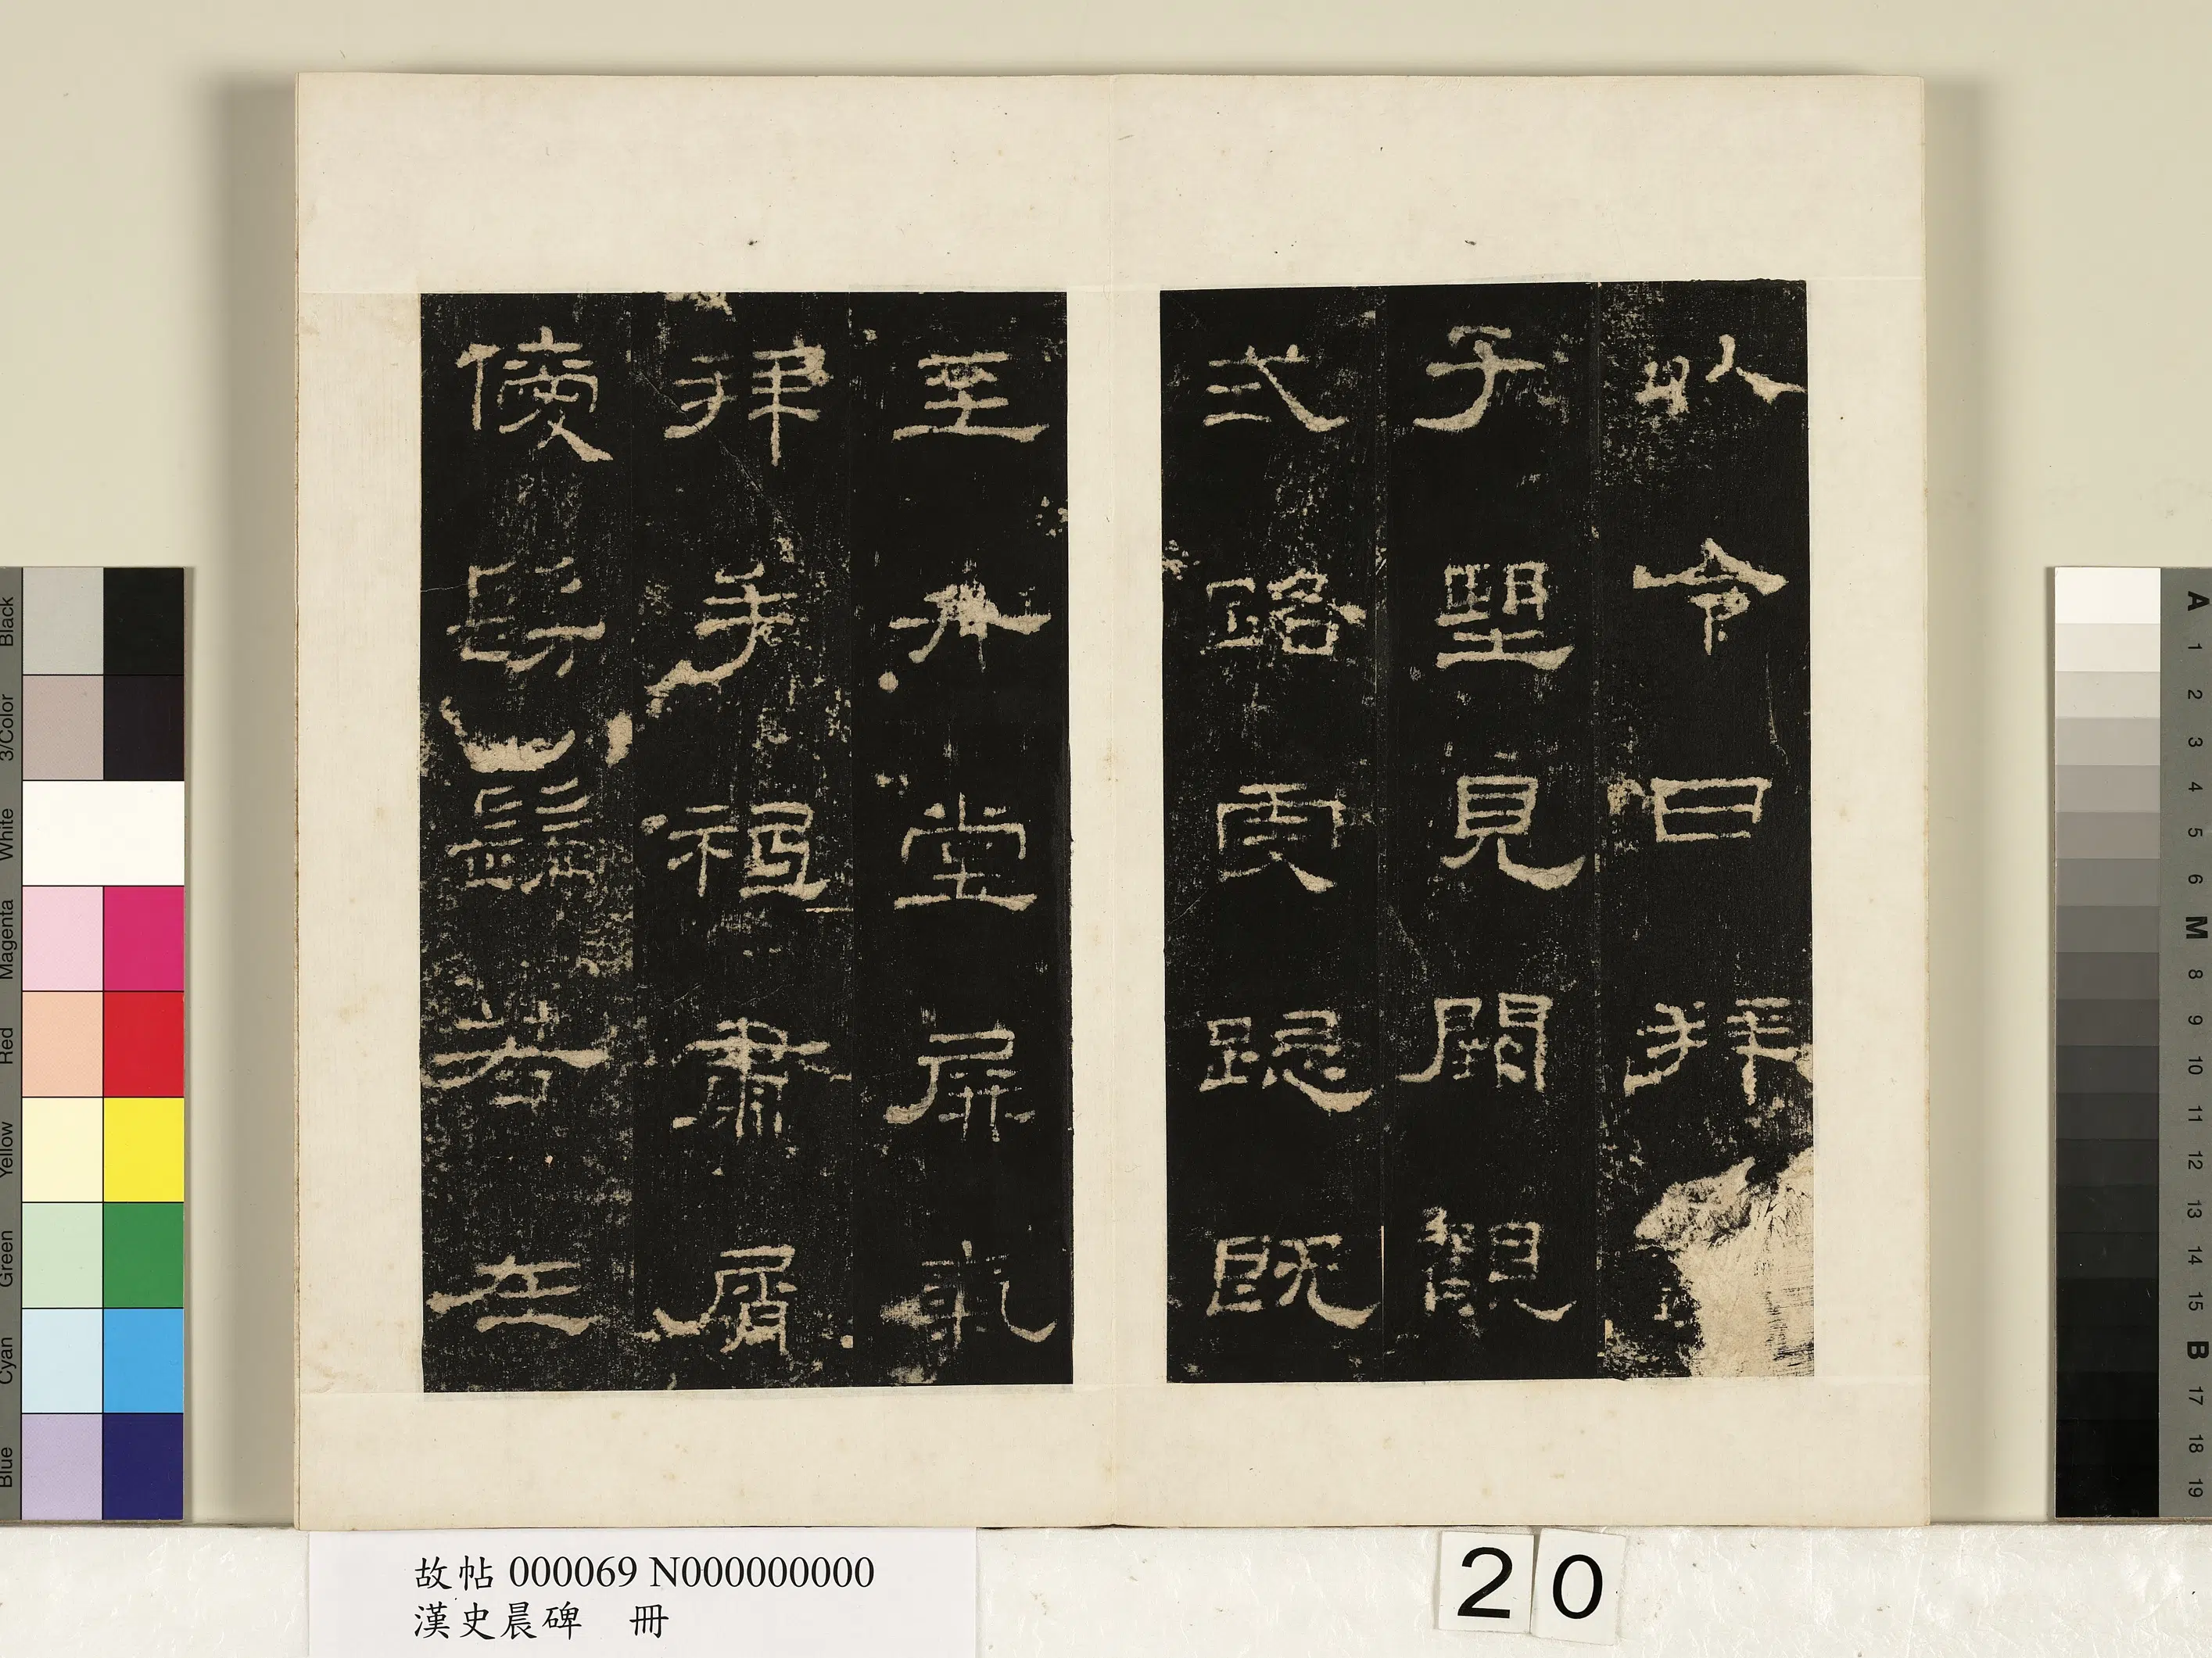 以令日拜
子望見闕觀
式路虔跽既
至升堂屏氣
拜手祗肅屑
僾髣髴若在
Black
3/Color
White
Magenta
Red
Yellow
Green
Cyan
Blue
A
1
2
3
4
5
6
M
8
9
10
11
12
13
14
15
B
17
18
19
故帖 000069 N000000000
漢史晨碑 冊
20